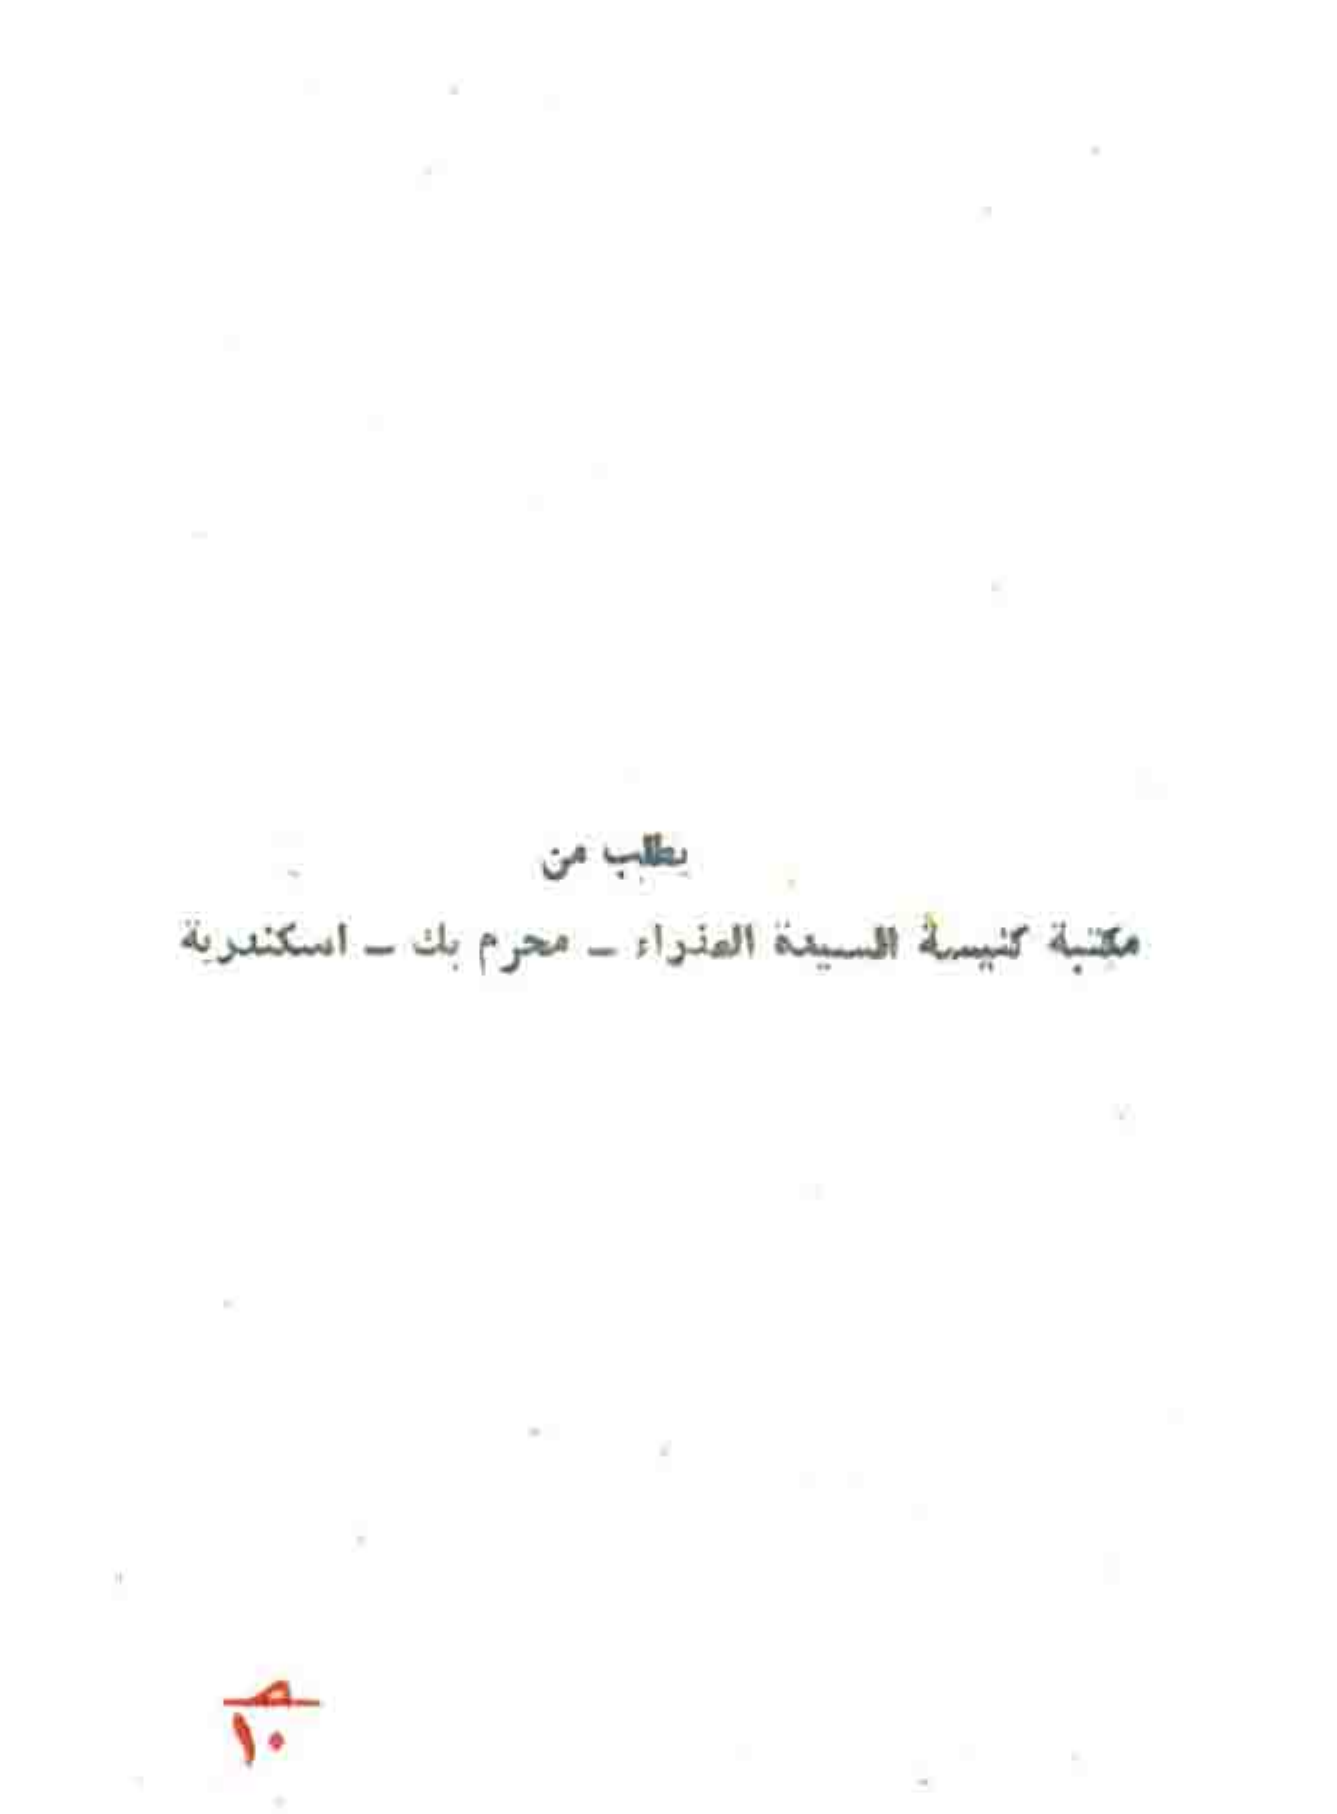 يطلب من
مكتبة كنيسة السيدة العذراء – محرم بك – اسكندرية
١٠